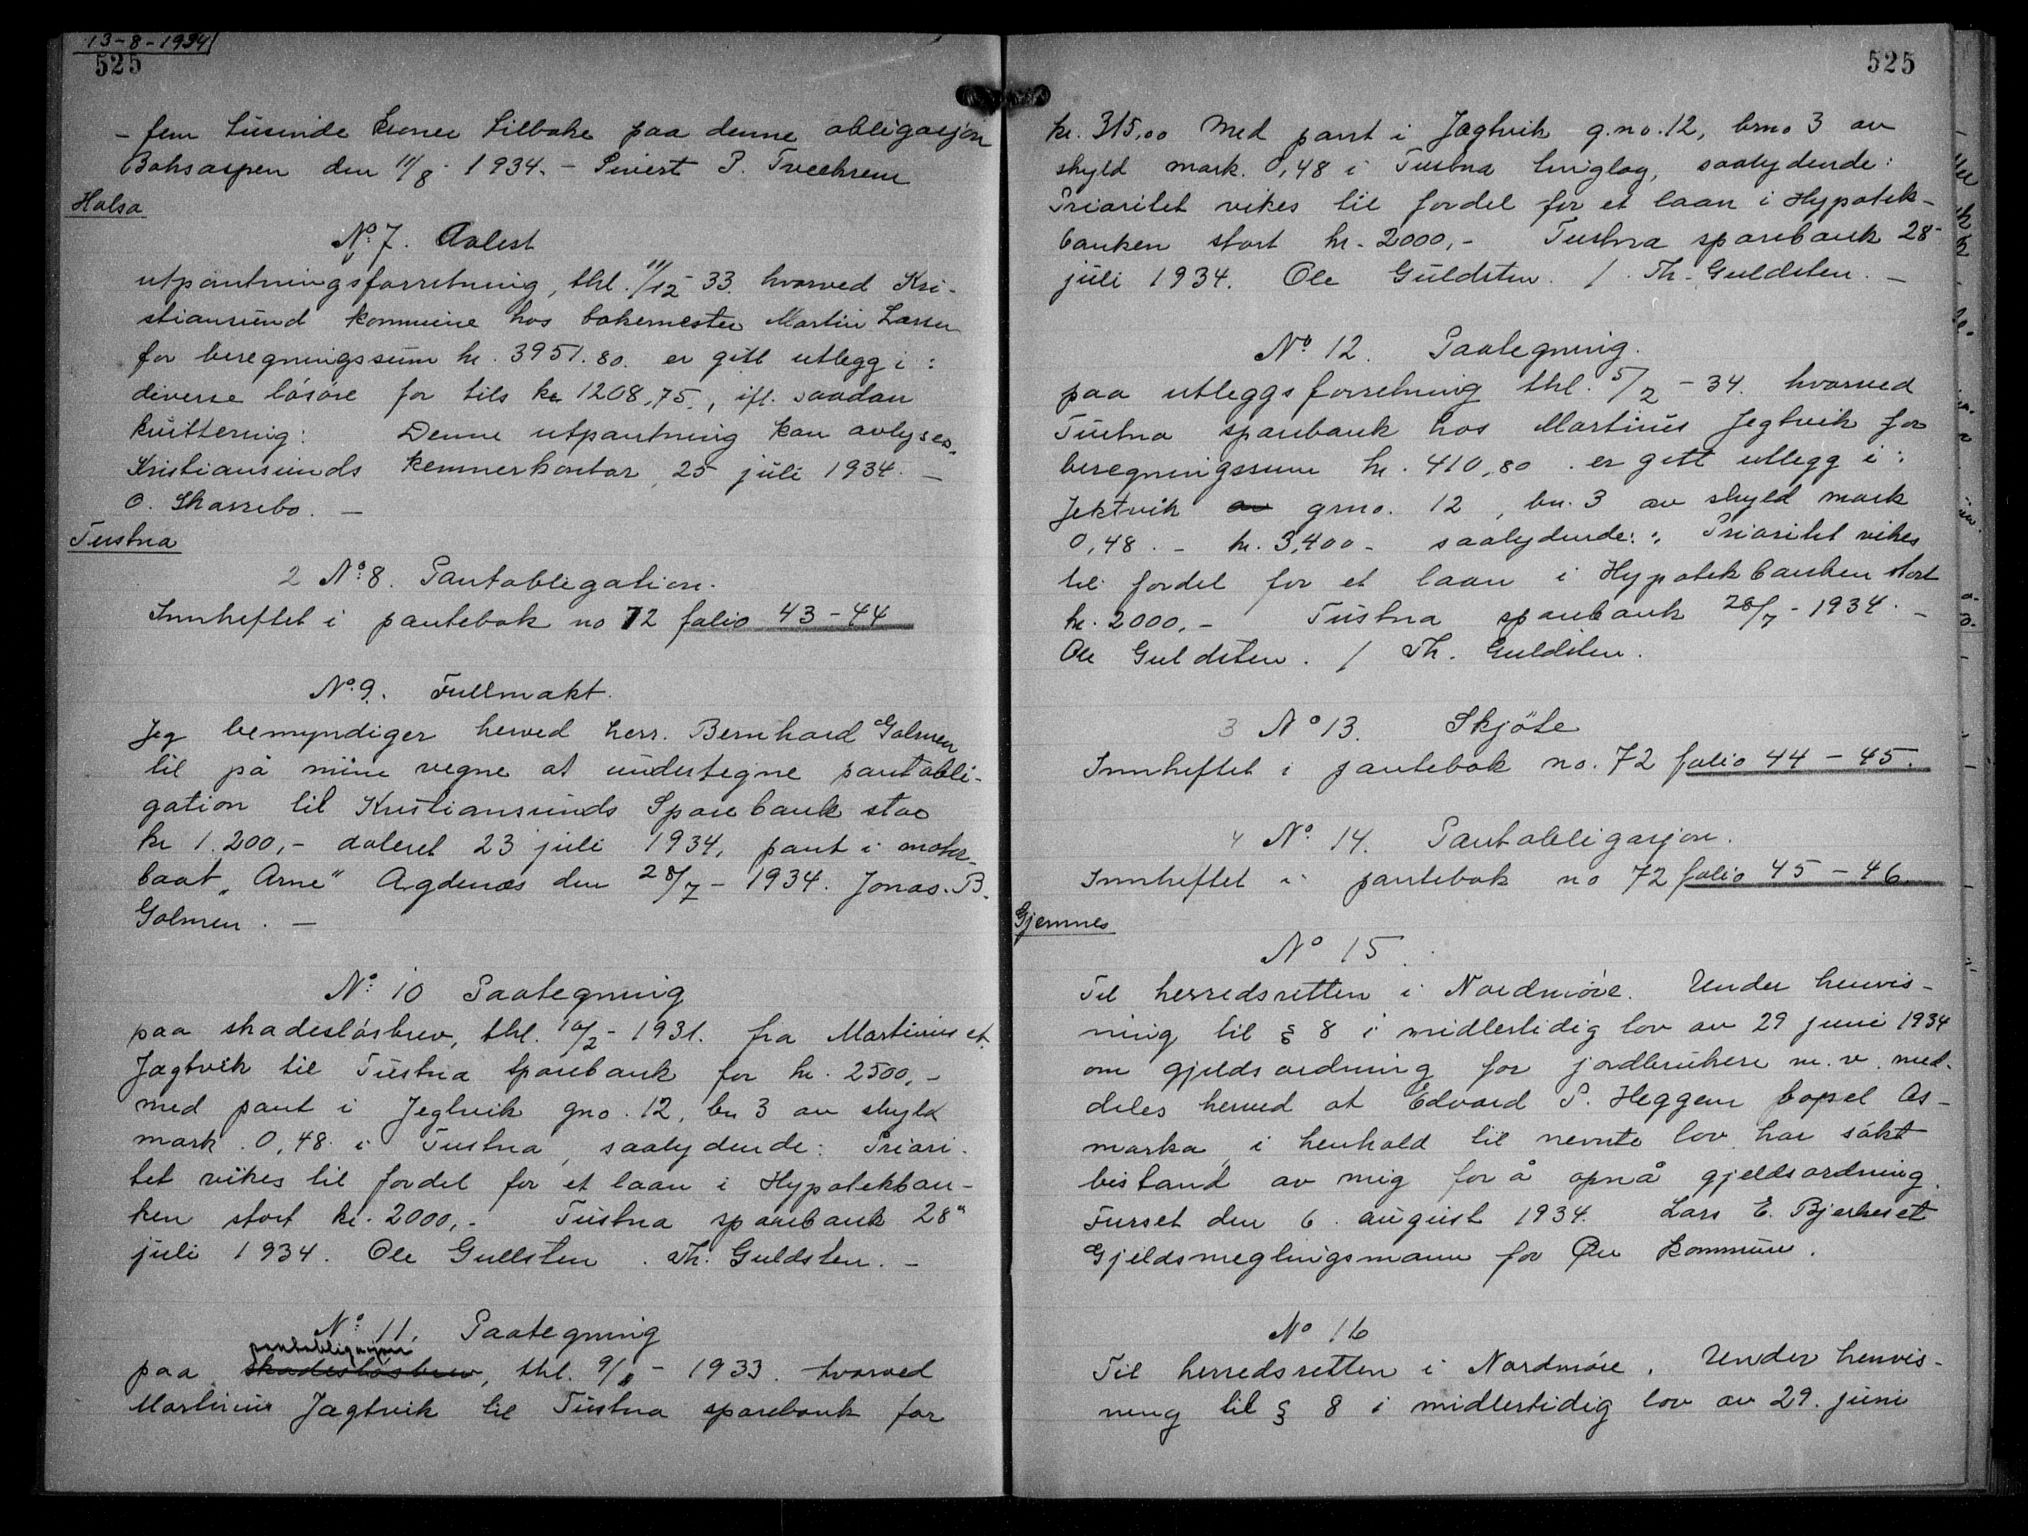 13-8-1934
525
- fem tusinde kroner tilbake paa denne obligasjon
den 11/8 1934. - Sivert P.
Halsa
No. 7. Avlest
utpantningsforretning, thl. 11/12-33. hvorved Kri-
stiansund kommune hos bakermester Martin Larsen
for beregningssum kr. 3951.80. er gitt utlegg i:
diverse lösöre for tils kr 1208,75., ifl. saadan
kvittering: Denne utpantning kan avlyses.
Kristiansunds kemnerkontor, 25 juli 1934. -
O. Skarsebo. -
Tustna
2 No. 8. Pantobligation.
Innheftet i pantebok no 72 folio 43-44
No. 9. Fullmakt.
Jeg bemyndiger herved herr. Bernhard Golmen
til på mine vegne at undertegne pantobli-
gation til Kristiansunds Sparebank stor
kr 1.200,- dateret 23 juli 1934, pant i motor-
baat „Arne" Agdenæs den 28/7-1934. Jonas. B.
Golmen. -
No. 10 Paategning
paa skadeslösbrev, thl. 10/2-1931. fra Martinus et.
Jægtvik til Tustna Sparebank for kr. 2500,-
med pant i Jegtvik gno. 12, bn 3 av skyld
mark. 0,48. i Tustna, saalydende: Priori-
tet vikes til fordel for et laan i Hypotekban-
ken stort kr. 2000,- Tustna sparebank 28"
juli 1934. Ole Gullsten. Th. Guldsten. -
No. 11. Paategning
pantobligasjon
paa skadeslösbrev, thl. 9/ - 1933. hvorved
Martinus Jægtvik til Tustna sparebank for
525
kr. 315,00 Med pant i Jægtvik g.no. 12, brno 3 av
skyld mark. 0,48 i Tustna tinglag, saalydende:
Prioritet vikes til fordel for et laan i Hypotek-
banken stort kr. 2000,- Tustna sparebank 28-
juli 1934. Ole Guldsten. / Th. Guldsten. -
No. 12. Paategning.
paa utleggsforretning thl. 5/2-34. hvorved
Tustna sparebank hos Martinus Jegtvik for
beregningssum kr. 410,80. er gitt utlegg i:
Jektvik av grno. 12, bn. 3 av skyld mark
0,48. - kr. 3,400- saalydende: „ Prioritet vikes
til fordel for et laan i Hypotekbanken stort
kr. 2000,- Tustna sparebank 28/7-1934. -
Ole Guldsten. / Th. Guldsten.
3 No 13. Skjöte
Innheftet i pantebok no. 72 folio 44-45.
4 No. 14. Pantobligasjon.
Innheftet i pantebok no 72 folio 45-46.
Gjemnes
No 15.
Til herredsretten i Nordmöre. Under henvis-
ning til § 8 i midlertidig lov av 29 juni 1934
om gjeldsordning for jordbrukere m.v. med-
deles herved at Edvard P. Heggem bopel As-
marka, i henhold til nevnte lov har sökt
bistand av mig for å opnå gjeldsordning.
Furset den 6. august 1934. Lars E. Bjerkeset
Gjeldsmeglingsmann for Öre kommune.
No 16
Til herredsretten i Nordmöre. Under henvis-
ning til § 8 i midlertidig lov av 29. juni